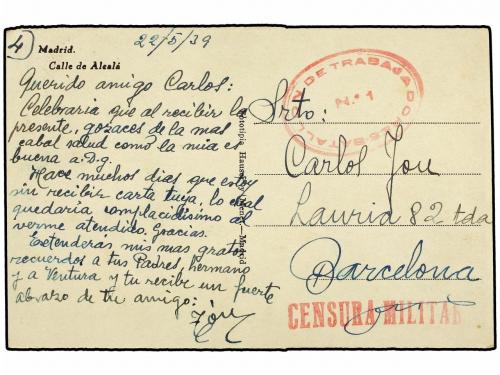 4
Madrid.
Calle de Alcalá
22/5/39
Querido amigo Carlos:
Celebraria que al recibir la
presente, gozaces de la mas
cabal salud como la mia es
buena a. D. g.
Hace muchos dias que estoy
sin recibir carta tuya, lo cual
quedaria complacidisimo al
verme atendido. Gracias.
Extenderas mis mas gratos
recuerdos a tus Padres, hermano
y a Ventura y tu recibe un fuerte
abrazo de tu amigo:
Fototipia Hauser y Menet.—Madrid
BATALLON DE TRABAJADORES
N.º 1
Srto:
Carlos Jou
Lauria 82 tda
Barcelona
CENSURA MILITAR